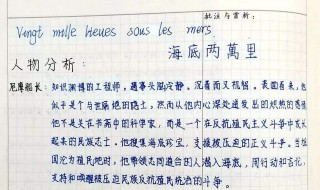 批注与赏析:
Vingt mille lieues sous les mers
海底两萬里
人物分析:
尼摩船长: 知识渊博的工程师, 遇事头脑冷静, 沉着而又机智。表面看来, 他
似乎是个与世隔绝的隐士, 然而从他内心深处迸发出的炽热的
他不是关在书斋中的科学家, 而是一个在反抗殖民主义斗争中成长
起来的民族志士。他搜集海底宝, 支援被压迫的正义斗争。当
国沦为殖民地时, 他带领志同道合的人潜入海底, 用行动和言论,
支持和唤醒被压迫民族反抗殖民统治的斗争。